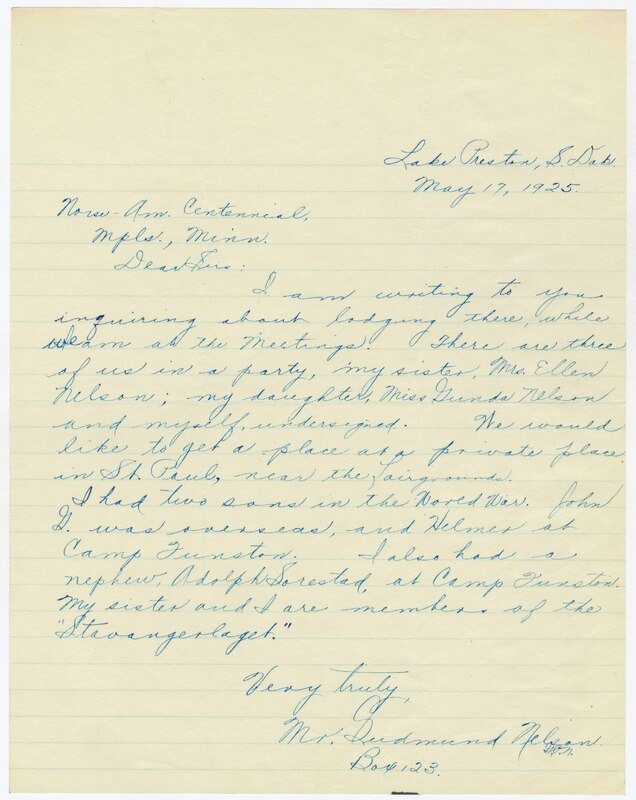 Lake Preston, S. Dak
May 17, 1925.
Norse-Am. Centennial,
Mpls., Minn.
Dear Sirs:
I am writing to you
inquiring about lodging there, while
am at the Meetings. There are three
of us in a party, my sister, Mrs. Ellen
Nelson; my daughter, Miss Gunda Nelson
and myself, undersigned. We would
like to get a place at a private place
in St. Paul, near the Fairgrounds.
I had two sons in the World War. John
G. was overseas, and Helmer at
Camp Funston. I also had a
nephew, Adolph Sorestad, at Camp Funston.
My sister and I are members of the
"Stavangerlaget."
Very truly,
Mr. Gudmund Nelson.
Box 123.